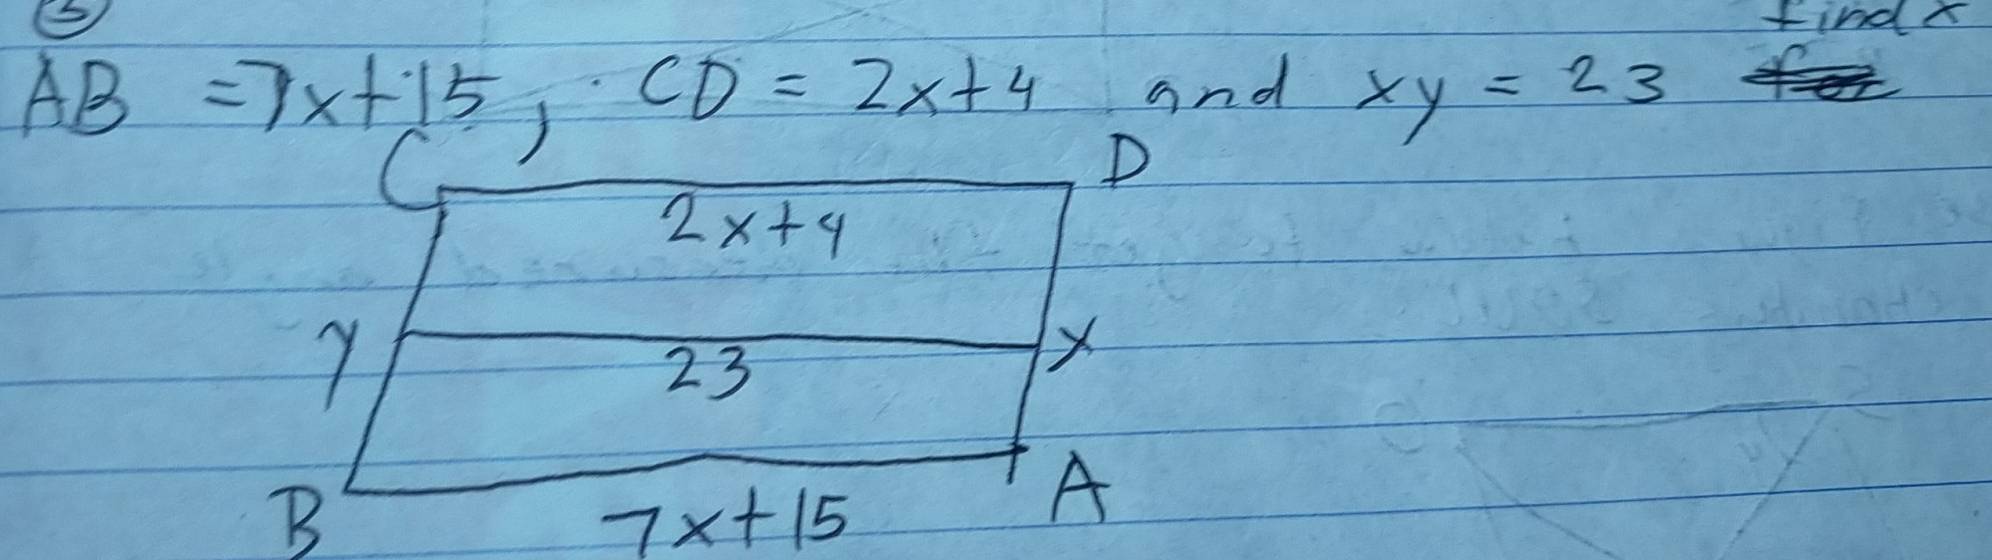 5
find x
AB = 7x+15, CD = 2x+4 and xy = 23
C D
2x+4
y x
23
B A
7x+15